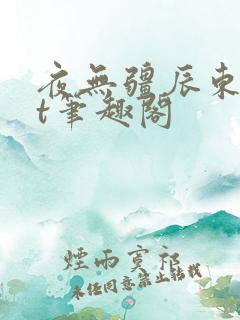 夜無疆辰東
t筆趣閣
煙雨寞祈
未经同意禁止转载